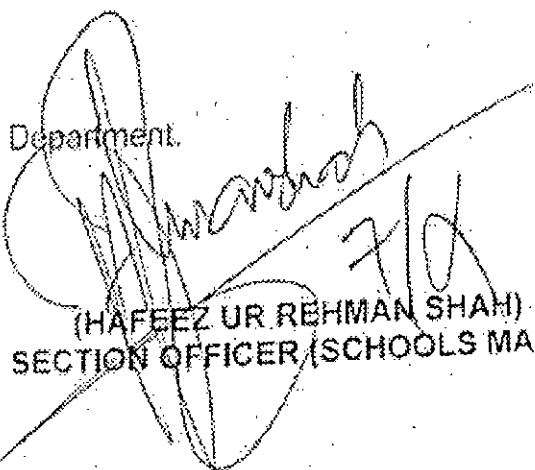 Department.
(HAFEEZ UR REHMAN SHAH)
SECTION OFFICER (SCHOOLS MA